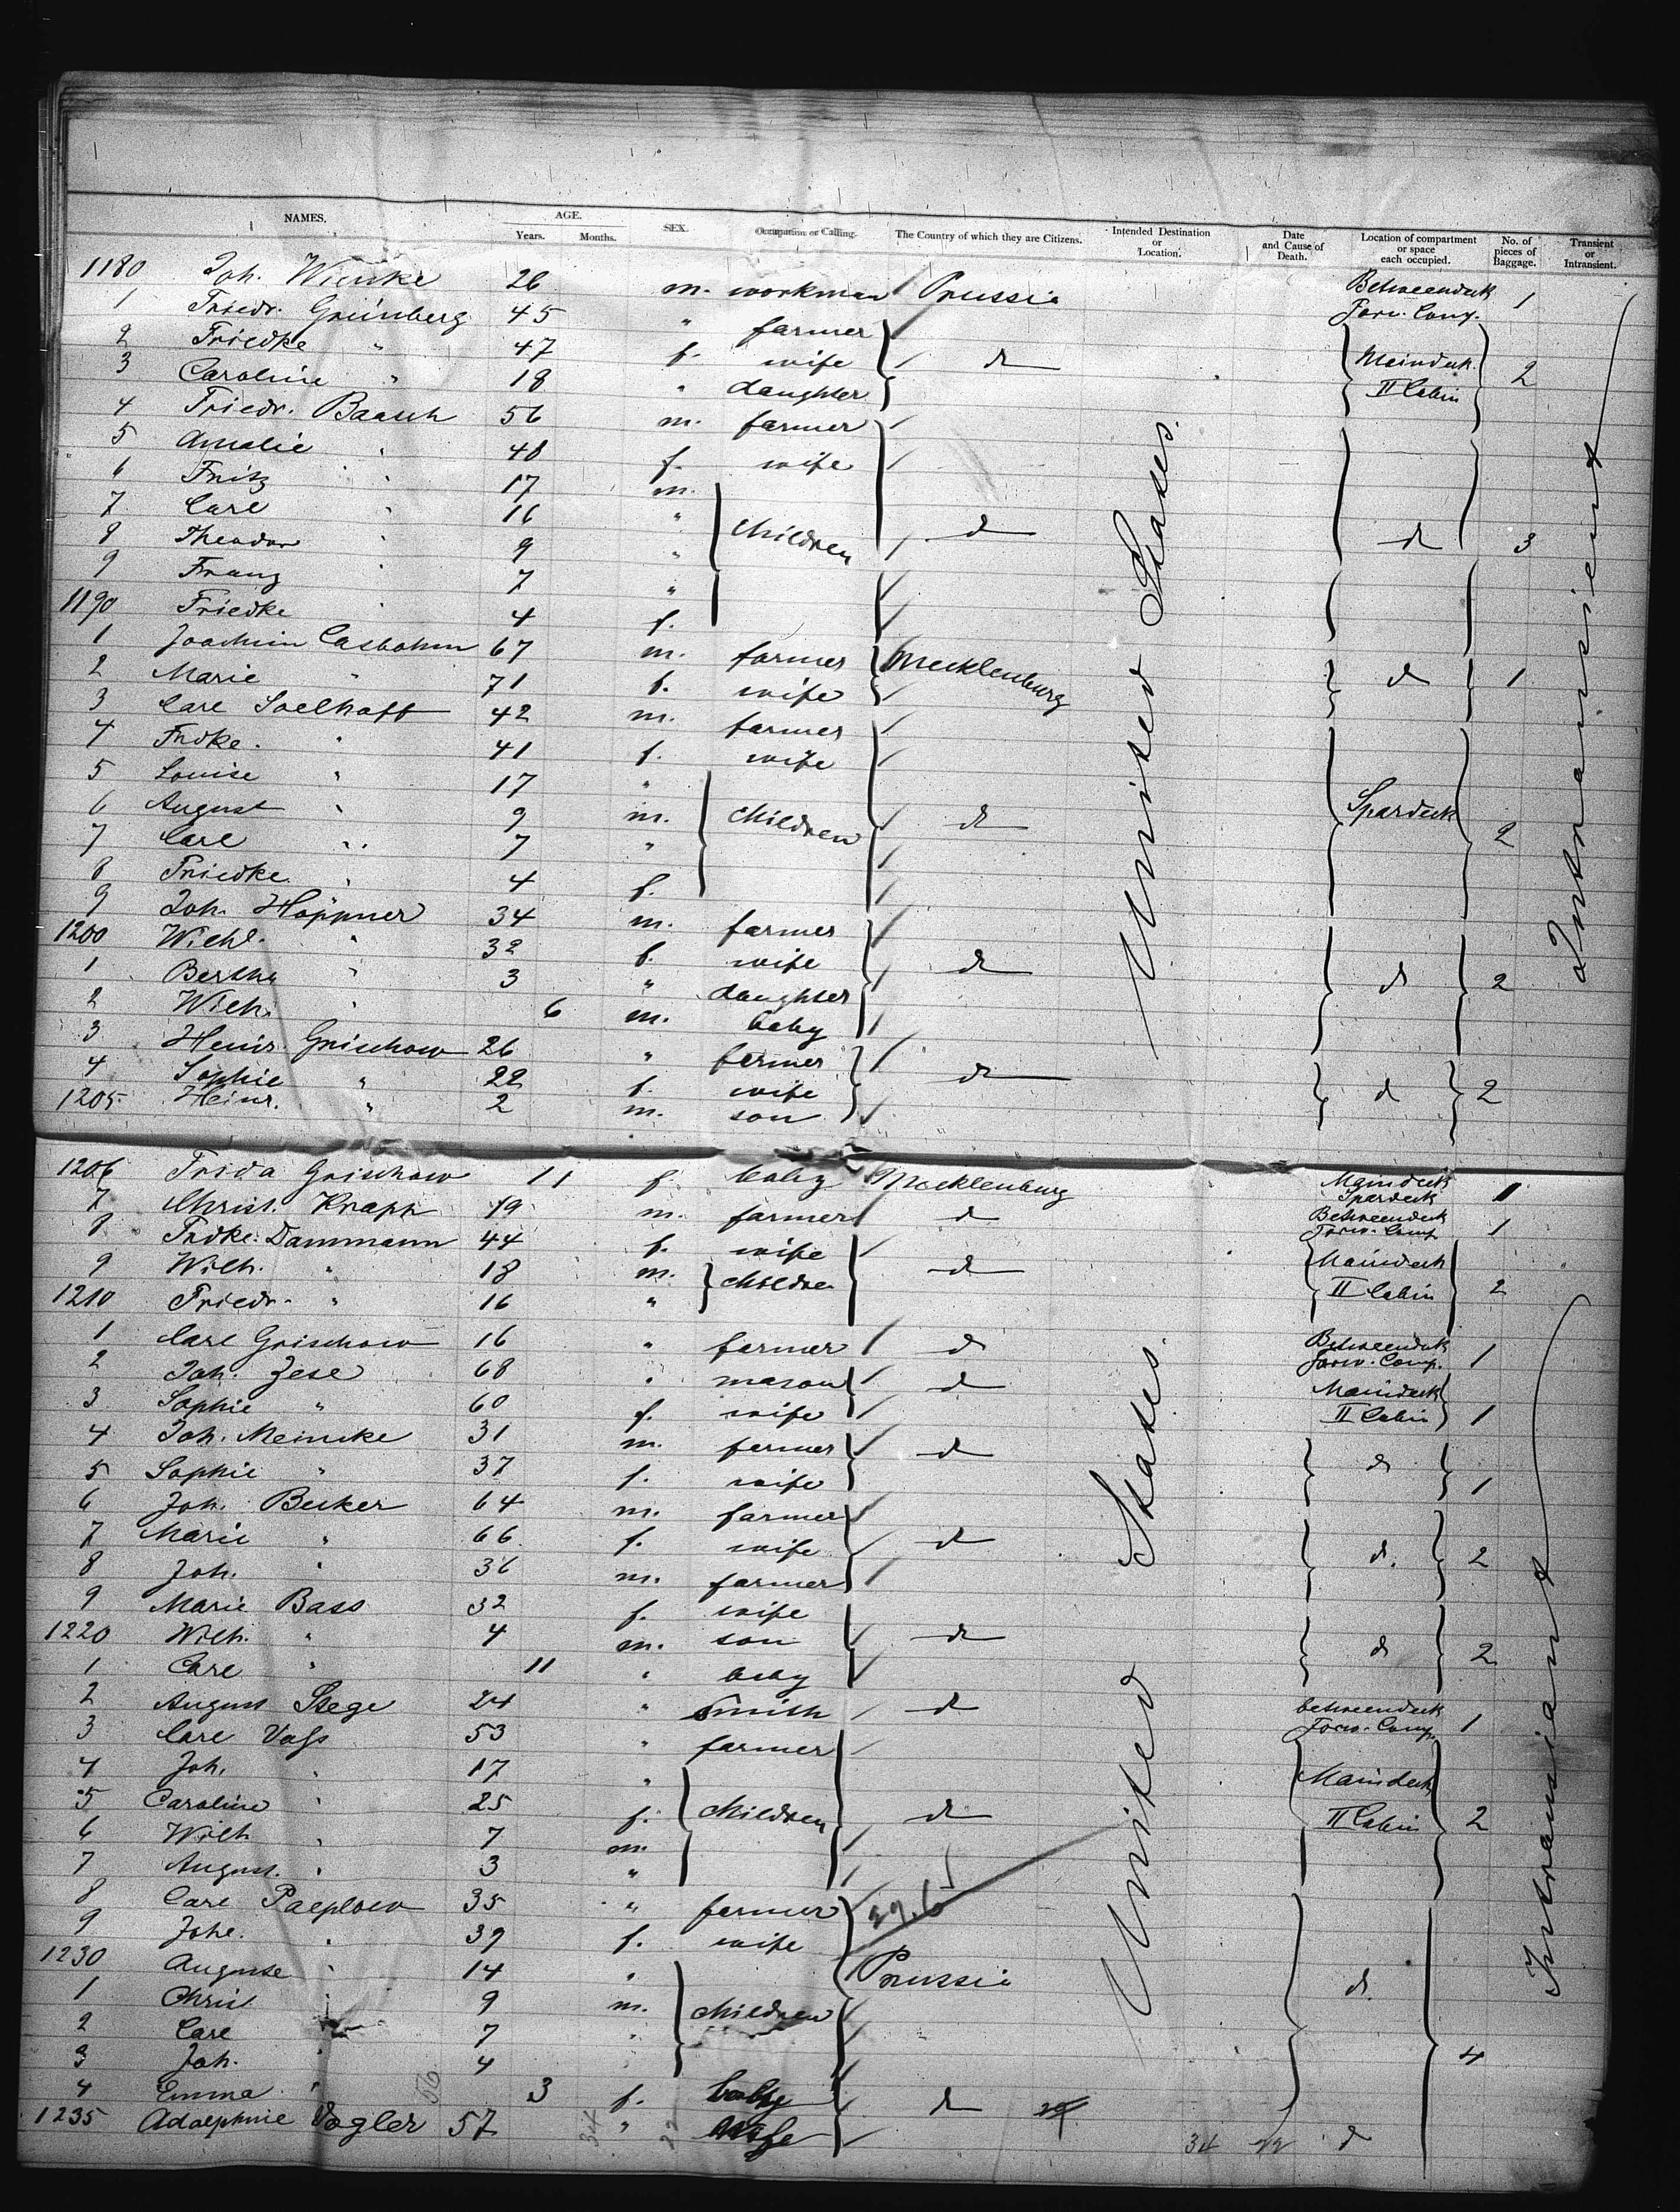 NAMES. AGE. SEX. Occupation or Calling. The Country of which they are Citizens. Intended Destination or Location. Date and Cause of Death. Location of compartment or space each occupied. No. of pieces of Baggage. Transient or Intransient.
Years. Months.
1180 Joh. Wienke 26 m. workman Prussia Betweendeck Forw. Comp. 1
1 Friedr. Grünberg 45 " farmer
2 Friedke " 47 f. wife d Maindeck II Cabin 2
3 Caroline " 18 " daughter
4 Friedr. Baasch 56 m. farmer
5 Amalie " 48 f. wife
6 Fritz " 17 m.
7 Carl " 16 " children d d 3
8 Theodor " 9 "
9 Franz " 7 "
1190 Friedke " 4 f.
1 Joachim Casbohm 67 m. farmer Mecklenburg d 1
2 Marie " 71 f. wife
3 Carl Soelhaff 42 m. farmer
4 Frdke. " 41 f. wife
5 Louise " 17 "
6 August " 9 m. children d Spardeck 2
7 Carl " 7 "
8 Friedke. " 4 f.
9 Joh. Höppner 34 m. farmer
1200 Wilhl. " 32 f. wife d d 2
1 Bertha " 3 " daughter
2 Wilh. " 6 m. baby
3 Heinr. Grischow 26 " farmer d
4 Sophie " 22 f. wife d 2
1205 Heinr. " 2 m. son
United States.
Intransient
1206 Frida Grischow 11 f. baby Mecklenburg Maindeck Spardeck 1
7 Christ. Knapp 19 m. farmer d Betweendeck Forw. Comp 1
8 Frdke. Dammann 44 f. wife
9 Wilh. " 18 m. children d Maindeck II Cabin 2
1210 Friedr. " 16 "
1 Carl Grischow 16 " farmer d Betweendeck Forw. Comp. 1
2 Joh. Zese 68 " mason d Maindeck
3 Sophie " 60 f. wife II Cabin 1
4 Joh. Meincke 31 m. farmer d d
5 Sophie " 37 f. wife 1
6 Joh. Becker 64 m. farmer
7 Marie " 66 f. wife d d. 2
8 Joh. " 36 m. farmer
9 Marie Bass 32 f. wife
1220 Wilh. " 4 m. son d d 2
1 Carl " 11 " baby
2 August Stege 24 " smith d betweendeck Forw. Comp. 1
3 Carl Voss 53 " farmer
4 Joh. " 17 " Maindeck
5 Caroline " 25 f. children d II Cabin 2
6 Wilh " 7 m.
7 August. " 3 "
8 Carl Paeplow 35 " farmer
9 Johe. " 39 f. wife
1230 Auguste " 14 " Prussia d.
1 Christ " 9 m. children
2 Carl " 7 "
3 Joh. " 4 " 4
4 Emma " 3 f. baby d
1235 Adolphine Vogler 57 " wife 34 22 d
United States.
Intransient